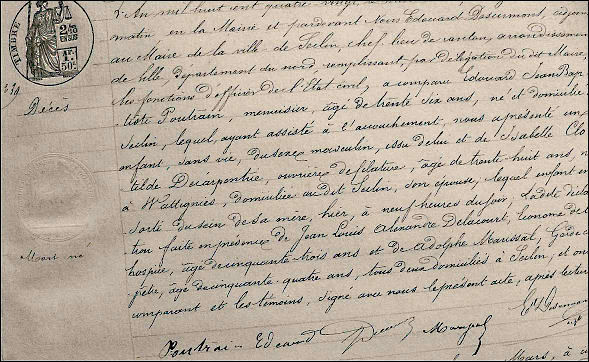 L'An mil huit cent quatre vingt
matin en la Mairie et pardevant Nous Edouard Desurmont, adjoint
au Maire de la ville de Seclin, chef lieu de canton, arrondissement
de Lille, département du nord remplissant, par délégation du dit Maire,
les fonctions d'officier de l'Etat civil, a comparu Edouard Jean Bap
tiste Poutrain, menuisier, âgé de trente six ans, né et domicilié
Seclin, lequel, ayant assisté à l'accouchement, nous a présenté un
enfant, sans vie, du sexe masculin, issu de lui et de Isabelle Clo
tilde Decarpentrie, ouvrière de filature, âgée de trente huit ans, n
à Wattignies, domiciliée au dit Seclin, son épouse, lequel enfant est
sorti du sein de sa mère, hier, à neuf heures du soir, Ladite décla
tion faite en présence de Jean Louis Alexandre Delacourt, Econome de l
hospice, âgé de cinquante trois ans et de Adolphe Marissal, Garde c
pêtre, âgé de cinquante quatre ans, tous deux domiciliés à Seclin, et ont
comparant et les témoins, signé avec nous le présent acte, après lecture
Poutrain Edouard
Mars, à
TIMBRE
2/10
EN SUS
1F
50c
Décès
Mort né